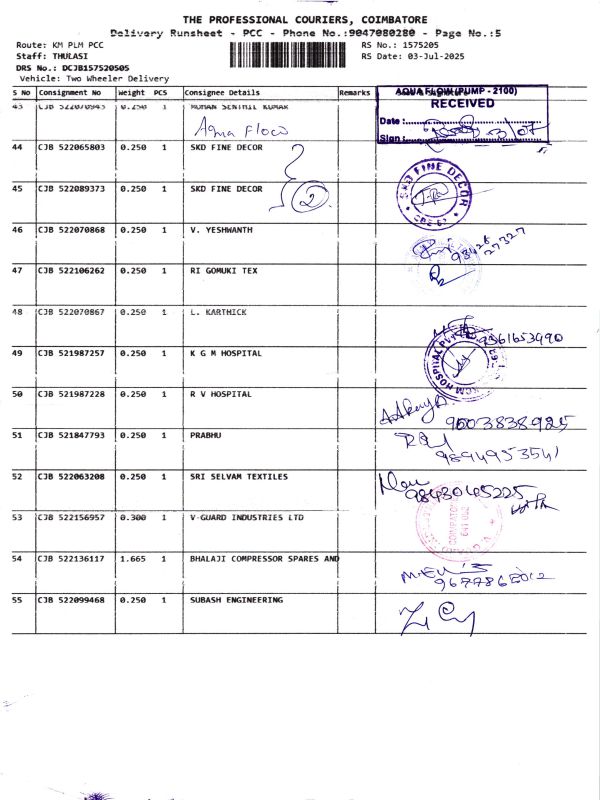 THE PROFESSIONAL COURIERS, COIMBATORE
Delivery Runsheet - PCC - Phone No.:9047080280 - Page No.:5
Route: KM PLM PCC
RS No.: 1575205
Staff: THULASI
RS Date: 03-Jul-2025
DRS No.: DCJB157520505
Vehicle: Two Wheeler Delivery
S No Consignment No Weight PCS Consignee Details Remarks
AQUA FLOW (PUMP - 2100)
RECEIVED
43 CJB 522070943 0.250 1 MOHAN SENTHIL KUMAR
Date :
3/07
Sign :
Aqua Flow
44 CJB 522065803 0.250 1 SKD FINE DECOR
SKD FINE DECOR
45 CJB 522089373 0.250 1 SKD FINE DECOR
2
46 CJB 522070868 0.250 1 V. YESHWANTH
98428
27327
47 CJB 522106262 0.250 1 RI GOMUKI TEX
48 CJB 522070867 0.250 1 L. KARTHICK
9361653490
49 CJB 521987257 0.250 1 K G M HOSPITAL
50 CJB 521987228 0.250 1 R V HOSPITAL
9003838925
51 CJB 521847793 0.250 1 PRABHU
9894953541
52 CJB 522063208 0.250 1 SRI SELVAM TEXTILES
9843045225
53 CJB 522156957 0.300 1 V-GUARD INDUSTRIES LTD
54 CJB 522136117 1.665 1 BHALAJI COMPRESSOR SPARES AND
55 CJB 522099468 0.250 1 SUBASH ENGINEERING